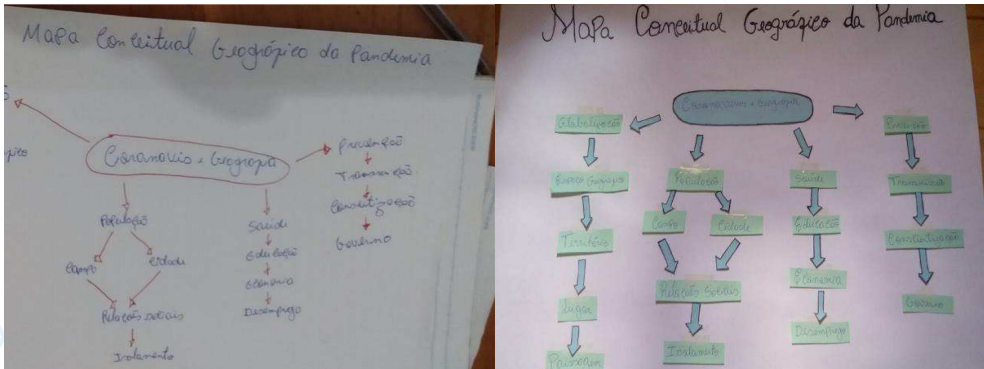 Mapa Conceitual Geográfico da Pandemia
Coronavírus e Geografia
Prevenção
Transmissão
Governo
População
Campo
Cidade
Relações sociais
Isolamento
Saúde
Educação
Economia
Desemprego
Mapa Conceitual Geográfico da Pandemia
Coronavírus e Geografia
Globalização
Espaço Geográfico
Território
Lugar
Paisagem
População
Campo
Cidade
Relações Sociais
Isolamento
Saúde
Educação
Economia
Desemprego
Prevenção
Transmissão
Conscientização
Governo